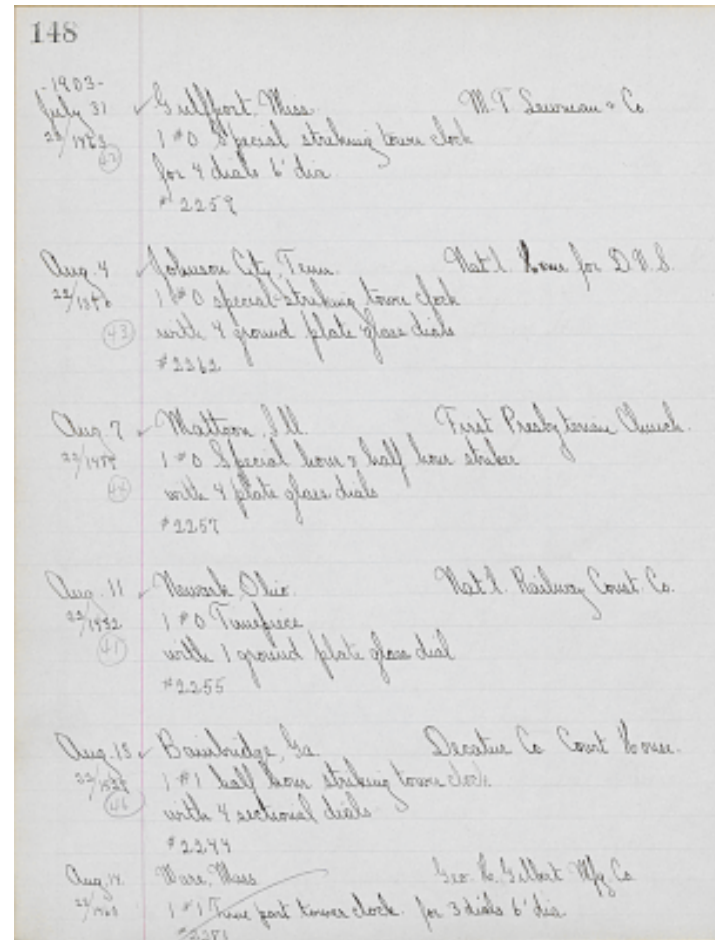 148
-1903-
July 31 ✓ Gulfport, Miss. M. T. & Co
22/1463 1 #0 Special striking tower clock
(42) for 4 dials 6' dia.
#2259
Aug. 4 Johnson City, Tenn. Nat'l. Home for D.V.S.
22/ 1 #0 special striking tower clock
(43) with 4 ground plate glass dials
#2262
Aug. 7 ✓ Mattoon, Ill. First Presbyterian Church.
22/ 1 #0 Special hour & half hour striker
with 4 plate glass dials
#2257
Aug. 11 ✓ Newark, Ohio. Nat'l. Railway Const. Co.
22/ 1 #0 Timepiece
(41) with 1 ground plate glass dial
#2255
Aug. 13 ✓ Bainbridge, Ga. Decatur Co Court House.
22/ 1 #1 half hour striking tower clock
(46) with 4 sectional dials
#2244
Aug. 14 Ware, Mass Geo. H. Gilbert Mfg Co
22/ 1 #1 Time part tower clock. for 3 dials 6' dia